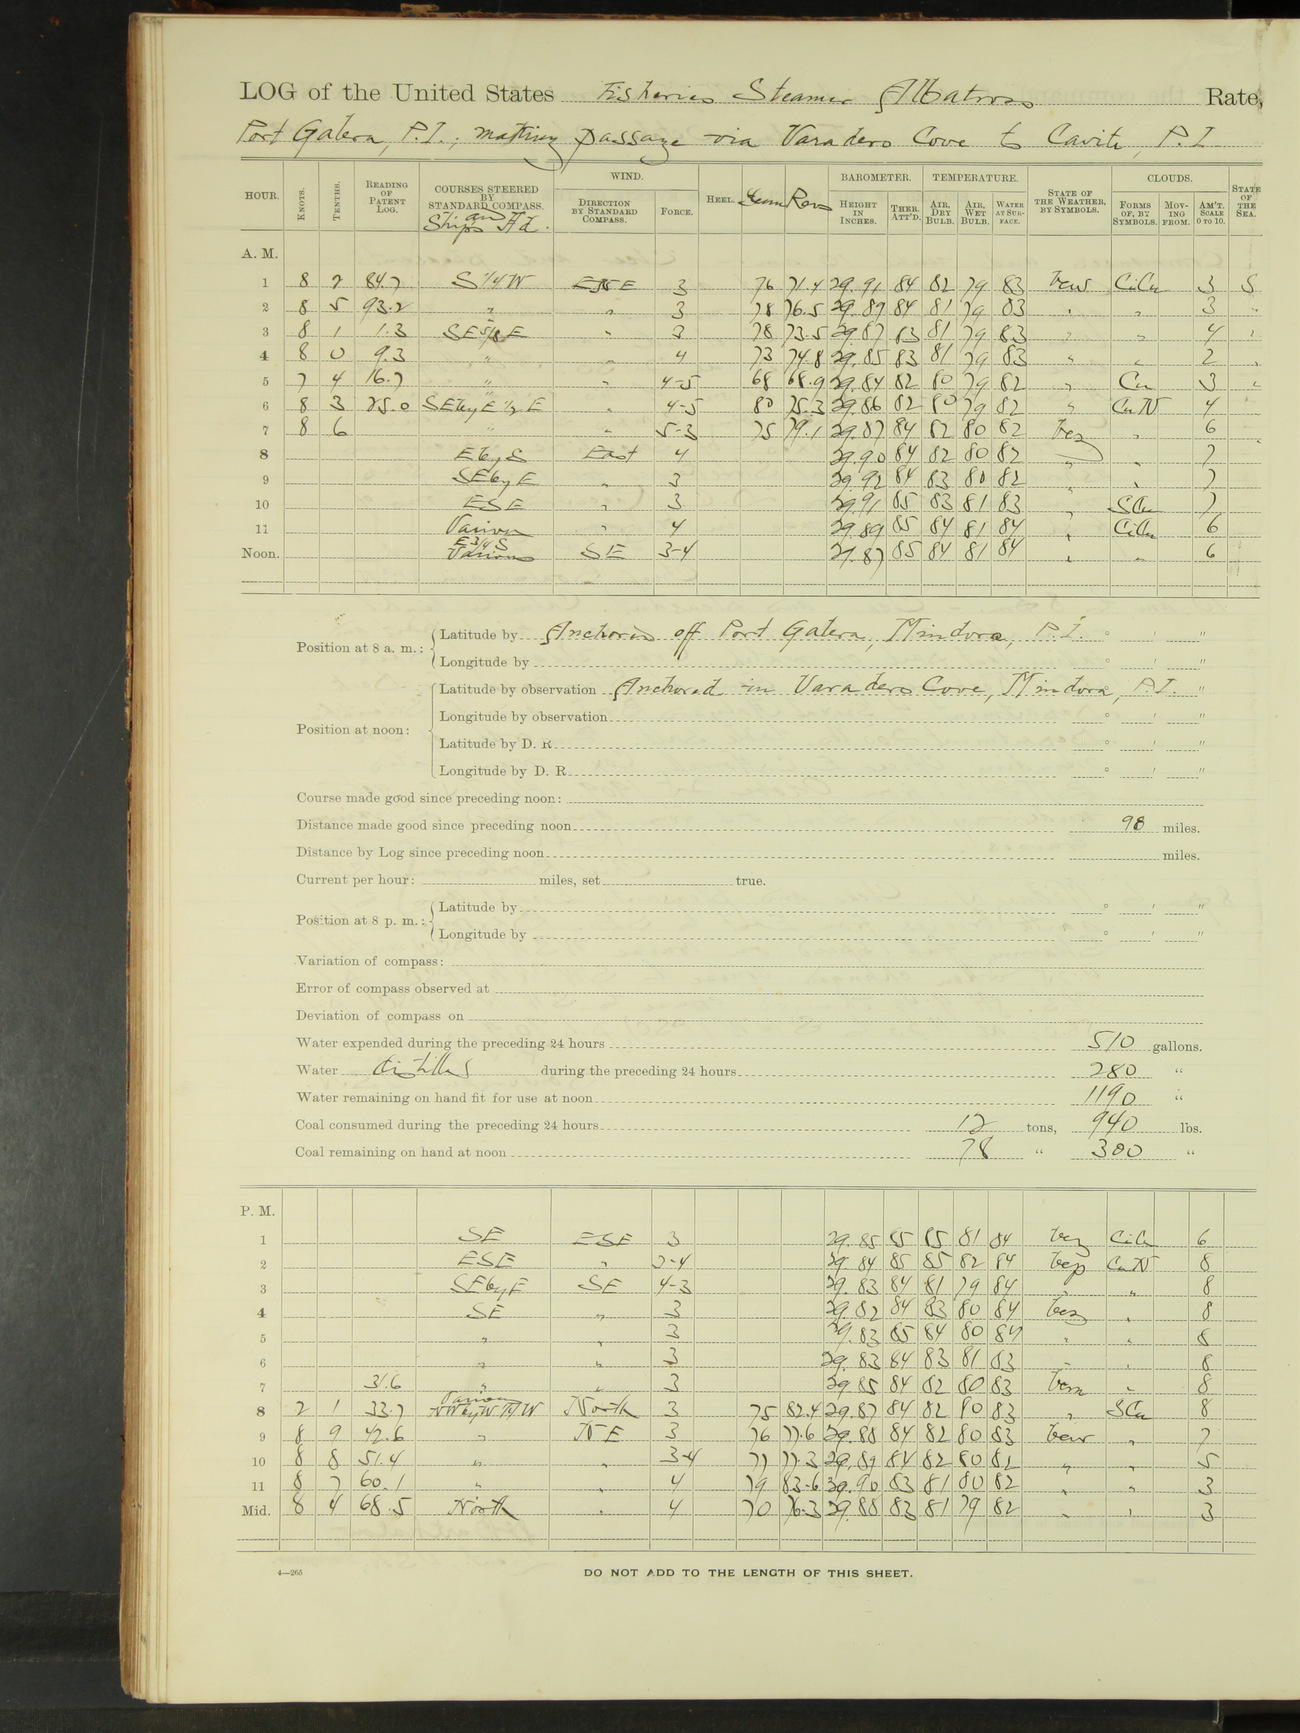 LOG of the United States Fisheries Steamer Albatross Rate,
Port Galera, P.I.; making passage via Varadero Cove to Cavite, P.I.
HOUR. KNOTS. TENTHS. READING OF PATENT LOG. COURSES STEERED BY STANDARD COMPASS. and Ships Hd. WIND. DIRECTION BY STANDARD COMPASS. FORCE. HEEL. Steam Revs BAROMETER. HEIGHT IN INCHES. THER. ATT'D. TEMPERATURE. AIR, DRY BULB. AIR, WET BULB. WATER AT SURFACE. STATE OF THE WEATHER, BY SYMBOLS. CLOUDS. FORMS OF, BY SYMBOLS. MOVING FROM. AM'T. SCALE 0 TO 10. STATE OF THE SEA.
A. M.
1 8 7 84.7 S 1/4 W ESE 3 76 71.4 29.91 84 82 79 83 bcw CiCu 3 S
2 8 5 93.2 " " 3 78 76.5 29.89 84 81 79 83 " " 3 "
3 8 1 1.3 SE 5/8 E " 3 78 73.5 29.87 83 81 79 83 " " 4 "
4 8 0 9.3 " " 4 73 74.8 29.85 83 81 79 83 " " 2 "
5 7 4 16.7 " " 4-5 68 68.9 29.84 82 80 79 82 " Cu 3 "
6 8 3 25.0 SEbyE 1/2 E " 4-5 80 75.3 29.86 82 80 79 82 " CuN 4
7 8 6 " " 5-3 75 79.1 29.87 84 82 80 82 bcz " 6
8 EbyS East 4 29.90 84 82 80 82 " " 7
9 SEbyE " 3 29.92 84 83 80 82 " " 7
10 ESE " 3 29.91 85 83 81 83 " SCu 7
11 Various " 4 29.89 85 84 81 84 " CiCu 6
E 3/4 S
Noon. Various SE 3-4 29.87 85 84 81 84 " " 6
Position at 8 a. m.: Latitude by Anchored off Port Galera, Mindoro, P.I. ° ′ ″
Longitude by ° ′ ″
Position at noon: Latitude by observation Anchored in Varadero Cove, Mindoro, P.I. ″
Longitude by observation ° ′ ″
Latitude by D. R. ° ′ ″
Longitude by D. R. ° ′ ″
Course made good since preceding noon:
Distance made good since preceding noon 98 miles.
Distance by Log since preceding noon miles.
Current per hour: miles, set true.
Position at 8 p. m.: Latitude by ° ′ ″
Longitude by ° ′ ″
Variation of compass:
Error of compass observed at
Deviation of compass on
Water expended during the preceding 24 hours 510 gallons.
Water distilled during the preceding 24 hours 280 "
Water remaining on hand fit for use at noon 1190 "
Coal consumed during the preceding 24 hours 12 tons, 940 lbs.
Coal remaining on hand at noon 78 " 300 "
P. M.
1 SE ESE 3 29.85 85 85 81 84 bcz CiCu 6
2 ESE " 3-4 29.84 85 85 82 84 bcp CuN 8
3 SEbyE SE 4-3 29.83 84 81 79 84 " " 8
4 SE " 3 29.82 84 83 80 84 bcz " 8
5 " " 3 29.83 85 84 80 84 " " 8
6 " " 3 29.83 84 83 81 83 " " 8
7 31.6 " " 3 29.85 84 82 80 83 " 8
Various
8 2 1 33.7 North 3 75 82.4 29.87 84 82 80 83 " SCu 8
9 8 9 42.6 " NE 3 76 77.6 29.88 84 82 80 83 bcw " 7
10 8 8 51.4 " " 3-4 77 77.3 29.89 84 82 80 82 " " 5
11 8 7 60.1 " " 4 79 83.6 29.90 83 81 80 82 " " 3
Mid. 8 4 68.5 North " 4 70 76.3 29.88 83 81 79 82 " " 3
4—265
DO NOT ADD TO THE LENGTH OF THIS SHEET.